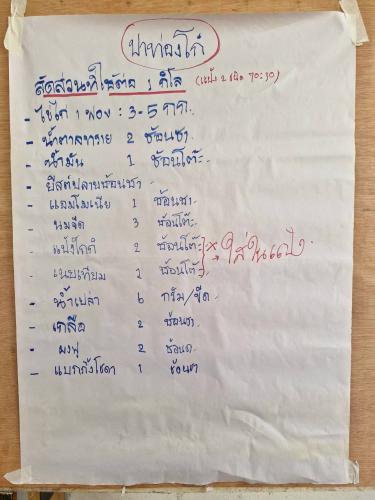 ปาท่องโก๋
สัดส่วนที่ใช้ต่อ 1 กิโล (แป้ง 2 ชนิด 70:30)
- ไข่ไก่ 1 ฟอง : 3-5 กก.
- น้ำตาลทราย 2 ช้อนชา
- น้ำมัน 1 ช้อนโต๊ะ
- ยีสต์ปลายช้อนชา
- แอมโมเนีย 1 ช้อนชา
- นมจืด 3 ช้อนโต๊ะ
- แป้งโกกิ 2 ช้อนโต๊ะ
- เนยเทียม 1 ช้อนโต๊ะ * ใส่ในแป้ง
- น้ำเปล่า 6 กรัม/ขีด
- เกลือ 2 ช้อนชา
- ผงฟู 2 ช้อนช
- แบกกิ้งโซดา 1 ช้อนชา